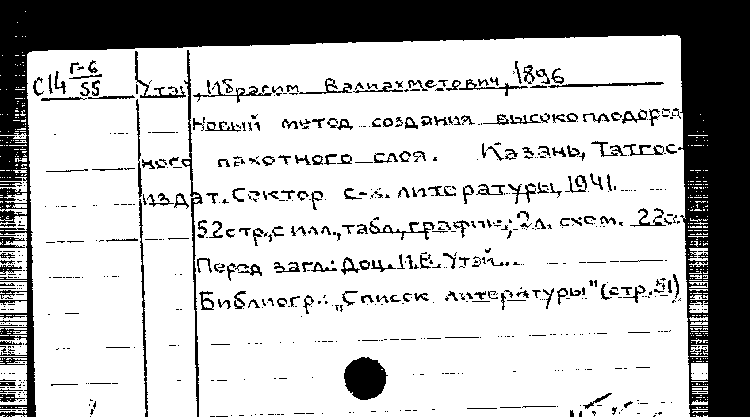 С14 Г-6/55
Утэй, Ибрагим Валиахметович, 1896
Новый метод создания высокоплодород-
ного пахотного слоя. Казань, Татгос-
издат. Сектор с-х. литературы, 1941.
52стр., с илл., табл., график.; 2л. схем. 22см
Перед загл.: Доц. И.В. Утэй...
Библиогр.: „Список литературы" (стр. 51)